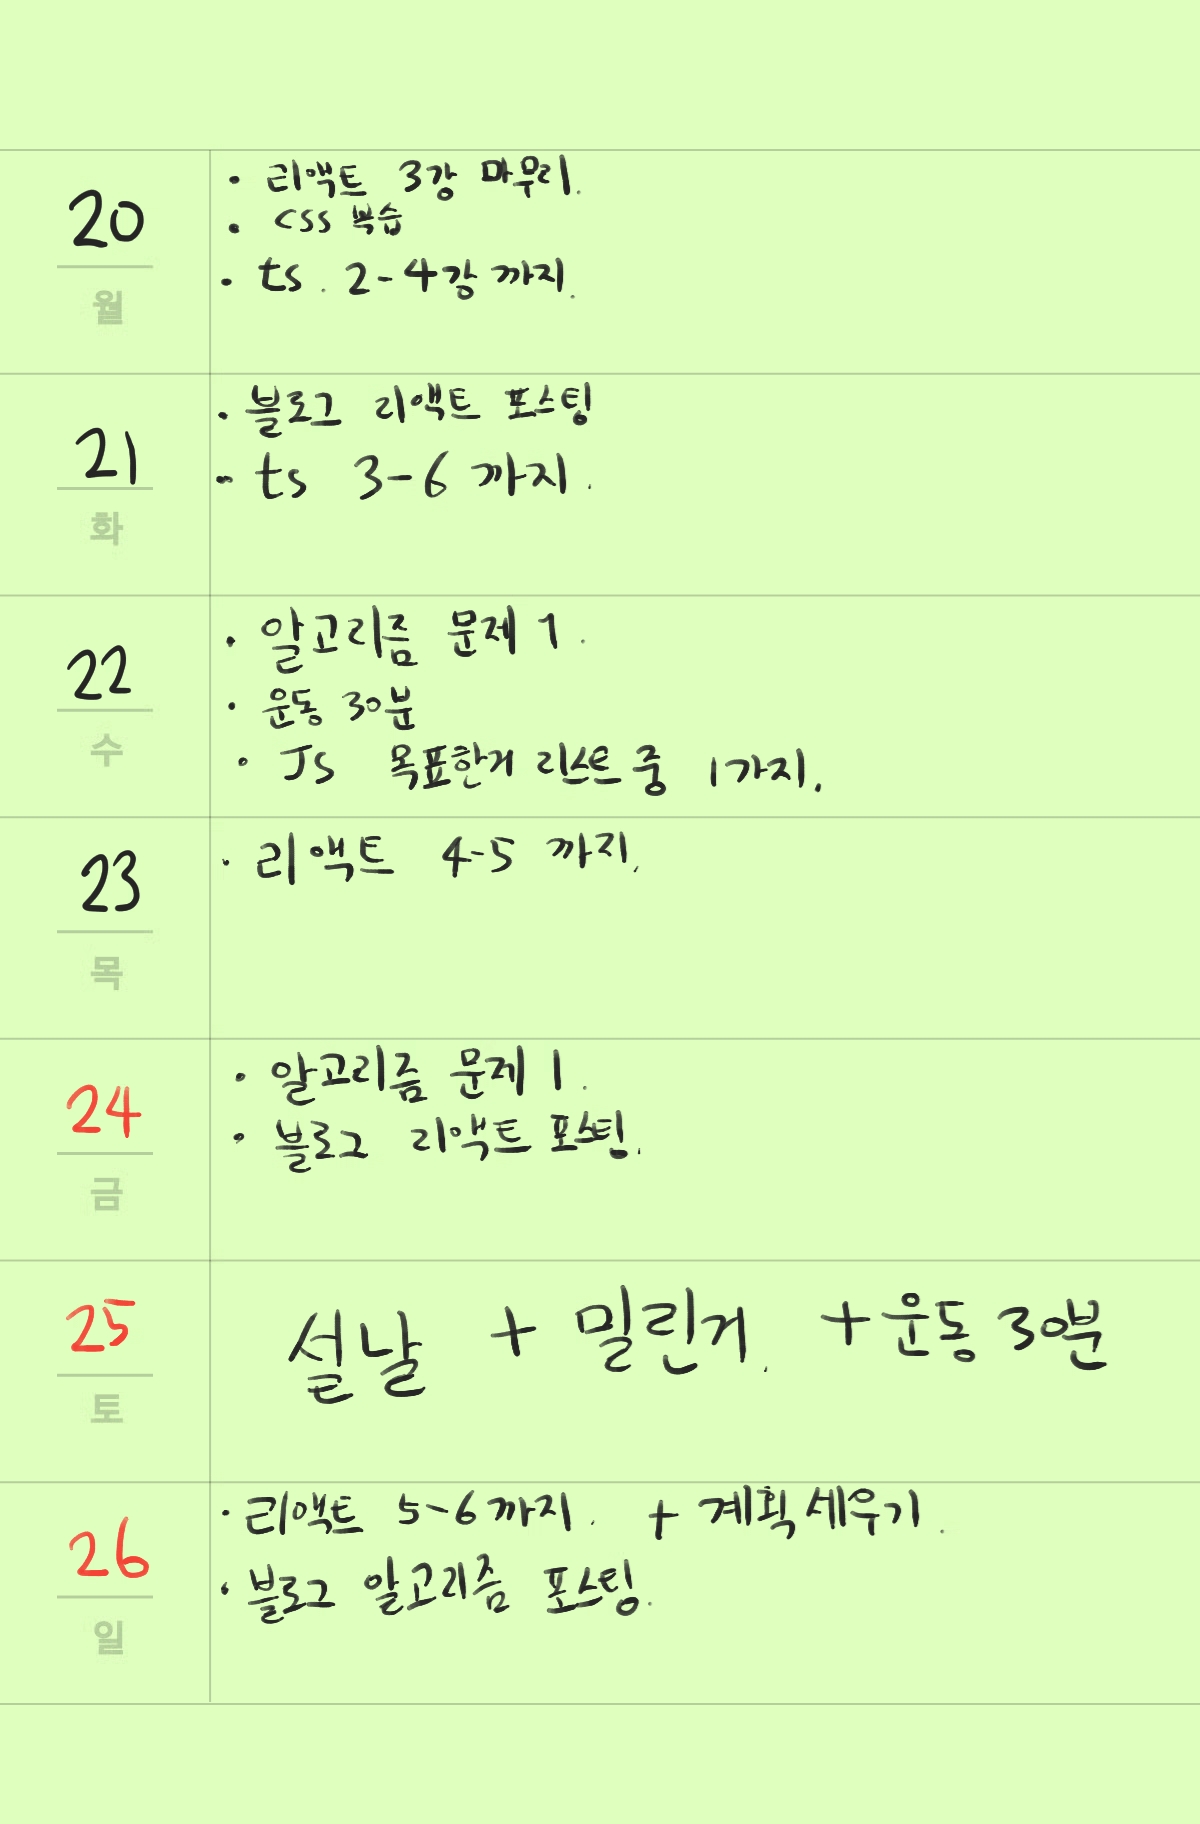 20
월
· 리액트 3강 마무리.
· CSS 복습
· ts. 2-4강 까지.
21
화
· 블로그 리액트 포스팅
- ts 3-6 까지.
22
수
· 알고리즘 문제 1.
· 운동 30분
· JS 목표한거 리스트 중 1가지.
23
목
· 리액트 4-5 까지.
24
금
· 알고리즘 문제 1.
· 블로그 리액트 포스팅.
25
토
설날 + 밀린거. + 운동 30분
26
일
· 리액트 5-6까지. + 계획세우기.
· 블로그 알고리즘 포스팅.